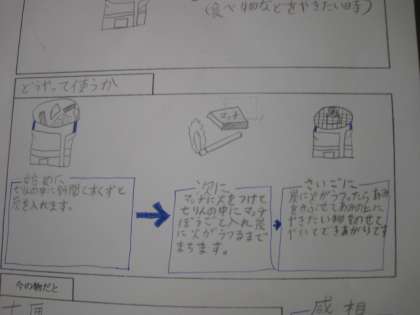 (食べ物などをやきたい時)
どうやって使うか
マッチ
始めに
七りんの中に新聞と木くずと
炭を入れます。
次に
マッチに火をつけて
七りんの中にマッチ
ぼうごと入れ炭
に火がうつるまで
まちます。
さいごに
炭に火がうつったらあみ
をかぶせてあみの上に
やきたい物をのせて
やいてできあがりです
今の物だと
感想